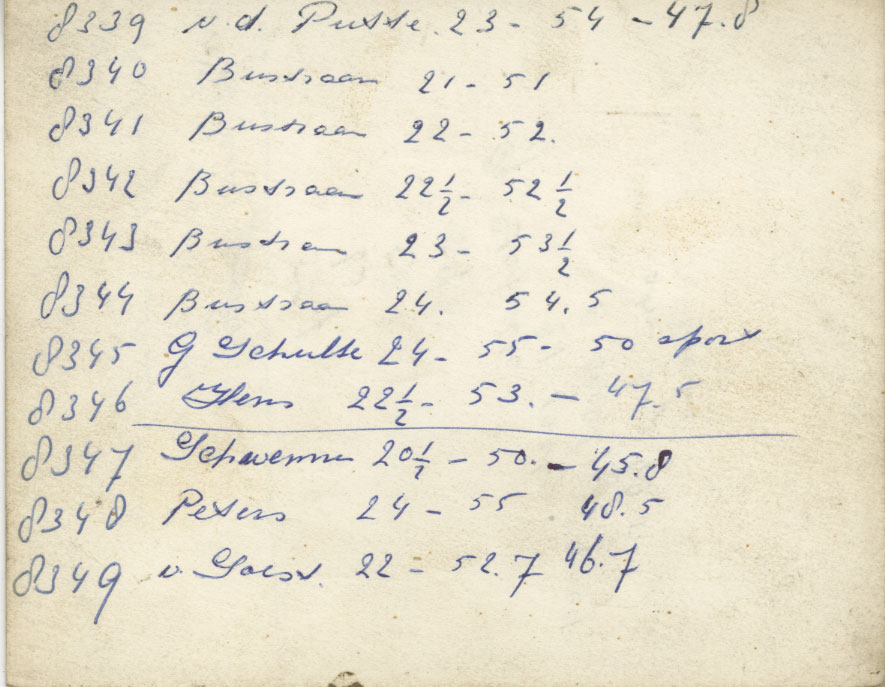 8339 v.d. Putte. 23 - 54 - 47.8
8340 Bustraan 21 - 51
8341 Bustraan 22 - 52.
8342 Bustraan 22½ - 52½
8343 Bustran 23 - 53½
8344 Bustraan 24. 54.5
8345 G Schulte 24 - 55 - 50 sport
8346 22½ - 53. - 47.5
8347 20½ - 50. - 45.8
8348 Peters 24 - 55 48.5
8349 v. Goest. 22 - 52.7 46.7